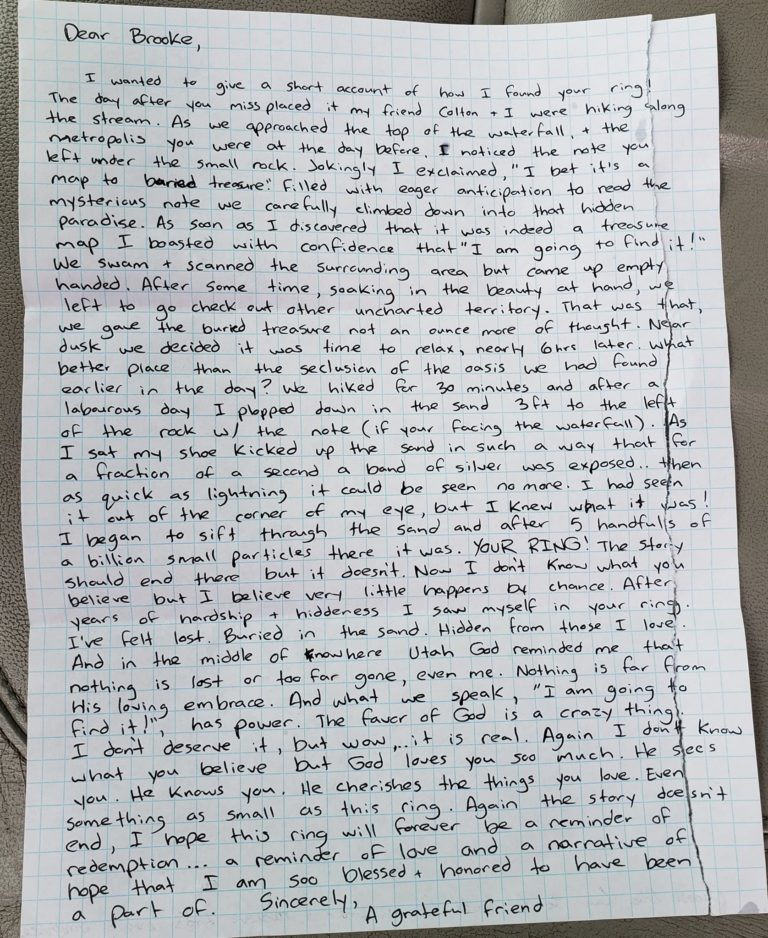 Dear Brooke,
I wanted to give a short account of how I found your ring!
The day after you miss placed it my friend Colton + I were hiking along
the stream. As we approached the top of the waterfall, + the
metropolis you were at the day before, I noticed the note you
left under the small rock. Jokingly I exclaimed, "I bet it's a
map to buried treasure." Filled with eager anticipation to read the
mysterious note we carefully climbed down into that hidden
paradise. As soon as I discovered that it was indeed a treasure
map I boasted with confidence that "I am going to find it!"
We swam + scanned the surrounding area but came up empty
handed. After some time, soaking in the beauty at hand, we
left to go check out other uncharted territory. That was that,
we gave the buried treasure not an ounce more of thought. Near
dusk we decided it was time to relax, nearly 6hrs later. What
better place than the seclusion of the oasis we had found
earlier in the day? We hiked for 30 minutes and after a
labourous day I plopped down in the sand 3ft to the left
of the rock w/ the note (if your facing the waterfall). As
I sat my shoe kicked up the sand in such a way that for
a fraction of a second a band of silver was exposed.. then
as quick as lightning it could be seen no more. I had seen
it out of the corner of my eye, but I knew what it was!
I began to sift through the sand and after 5 handfulls of
a billion small particles there it was. YOUR RING! The story
should end there but it doesn't. Now I don't know what you
believe but I believe very little happens by chance. After
years of hardship + hiddeness I saw myself in your ring.
I've felt lost. Buried in the sand. Hidden from those I love.
And in the middle of knowhere Utah God reminded me that
nothing is lost or too far gone, even me. Nothing is far from
His loving embrace. And what we speak, "I am going to
find it!", has power. The favor of God is a crazy thing.
I don't deserve it, but wow,..it is real. Again I don't know
what you believe but God loves you soo much. He sees
you. He knows you. He cherishes the things you love. Even
something as small as this ring. Again the story doesn't
end, I hope this ring will forever be a reminder of
redemption... a reminder of love and a narrative of
hope that I am soo blessed + honored to have been
a part of. Sincerely,
A grateful friend